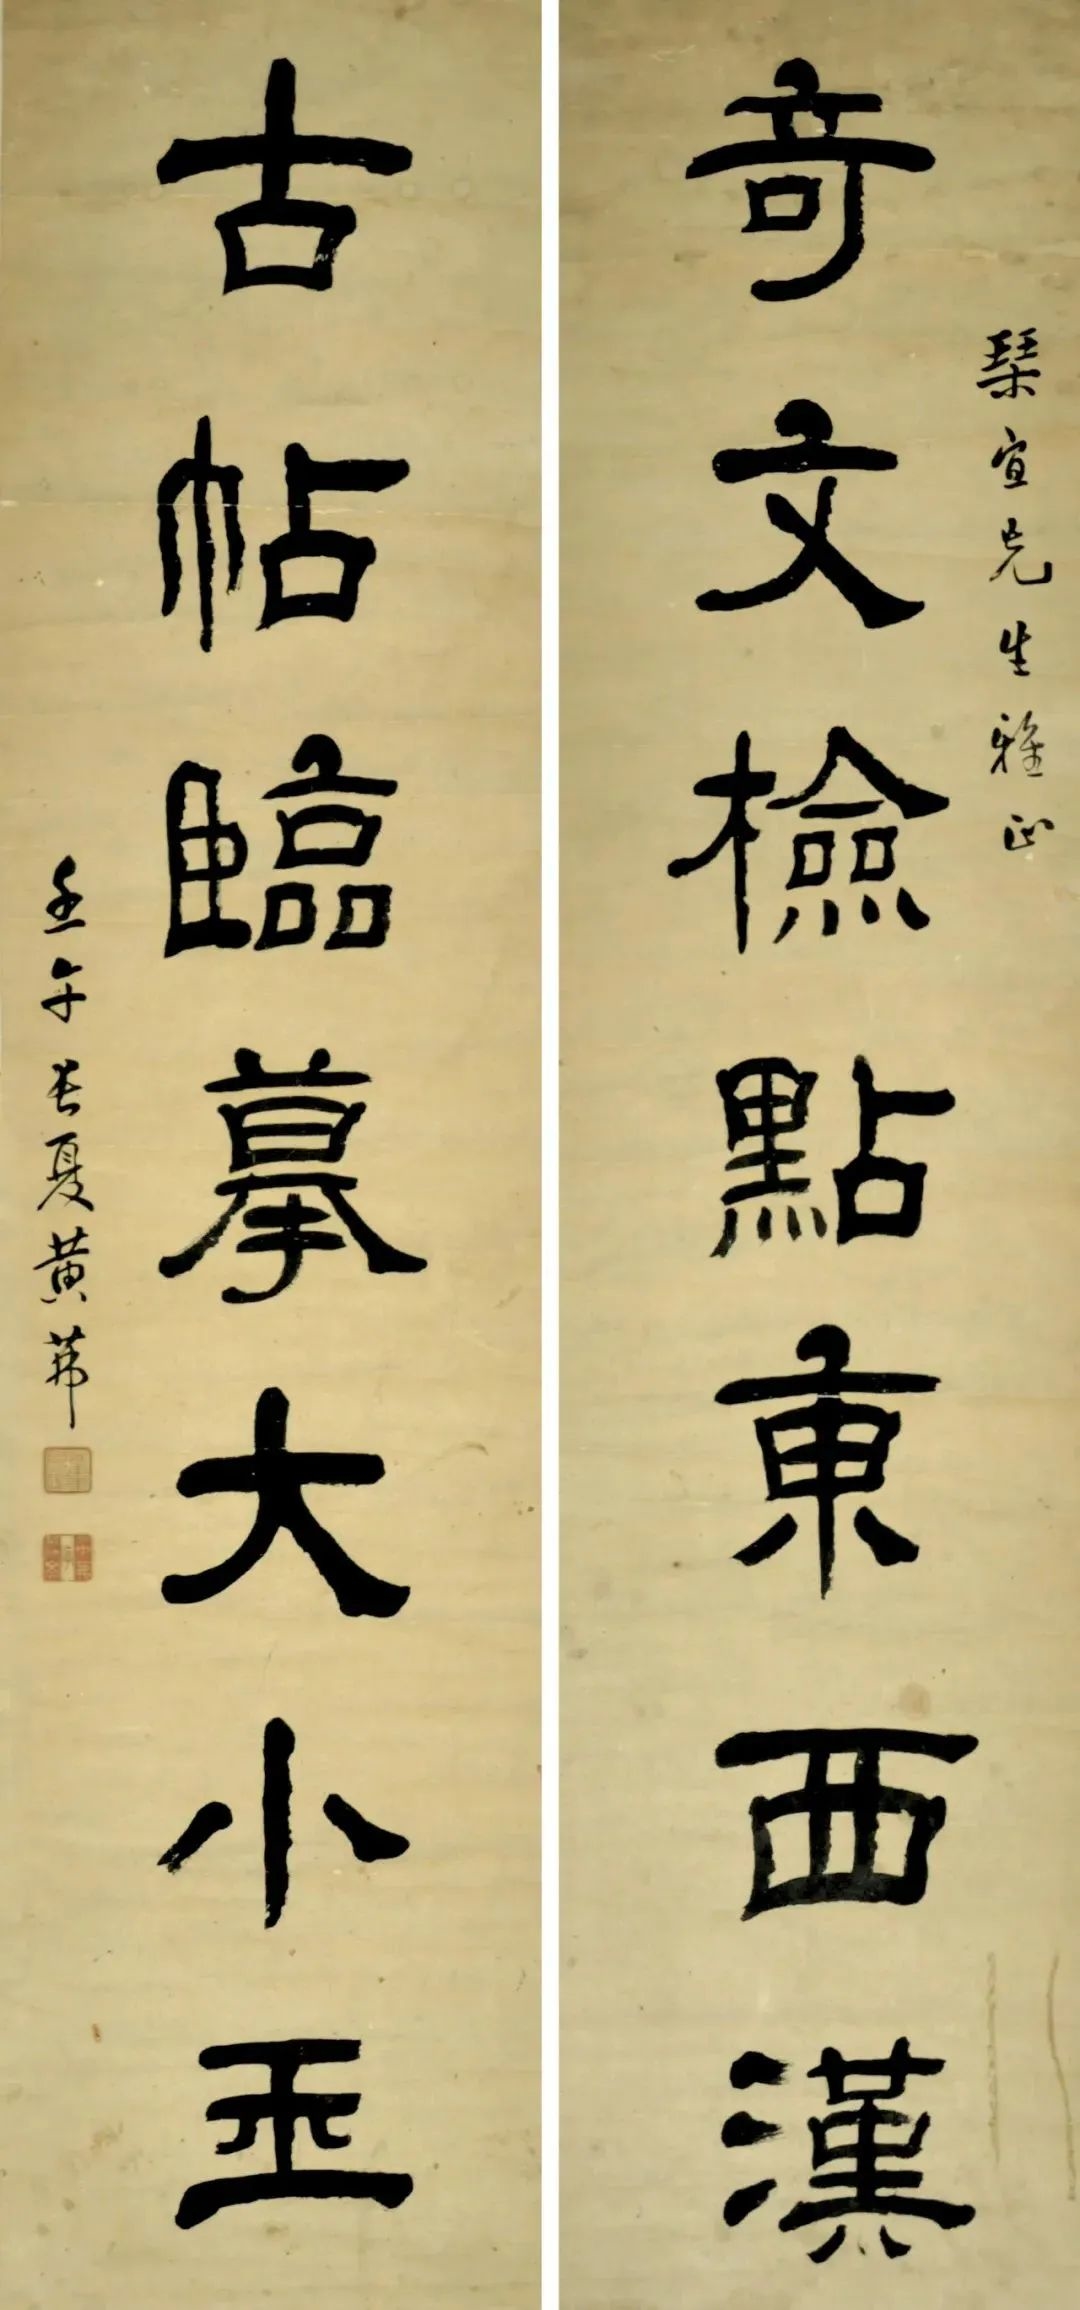 琹宣先生雅正
奇文檢點東西漢
古帖臨摹大小王
壬午長夏黃芾